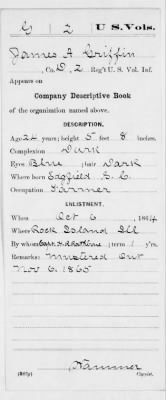 G 2 U S. Vols.
James A Griffin
, Co. D, 2 Reg't U. S. Vol. Inf.
Appears on
Company Descriptive Book
of the organization named above.
DESCRIPTION.
Age 24 years; height 5 feet 8 inches.
Complexion Dark
Eyes Blue; hair Dark
Where born Edgfield S. C.
Occupation Farmer
ENLISTMENT.
When Oct 6, 1864
Where Rock Island Ill
By whom Capt. H. R. ; term 1 y'rs.
Remarks: Mustered Out
Nov 6. 1865
Copyist.